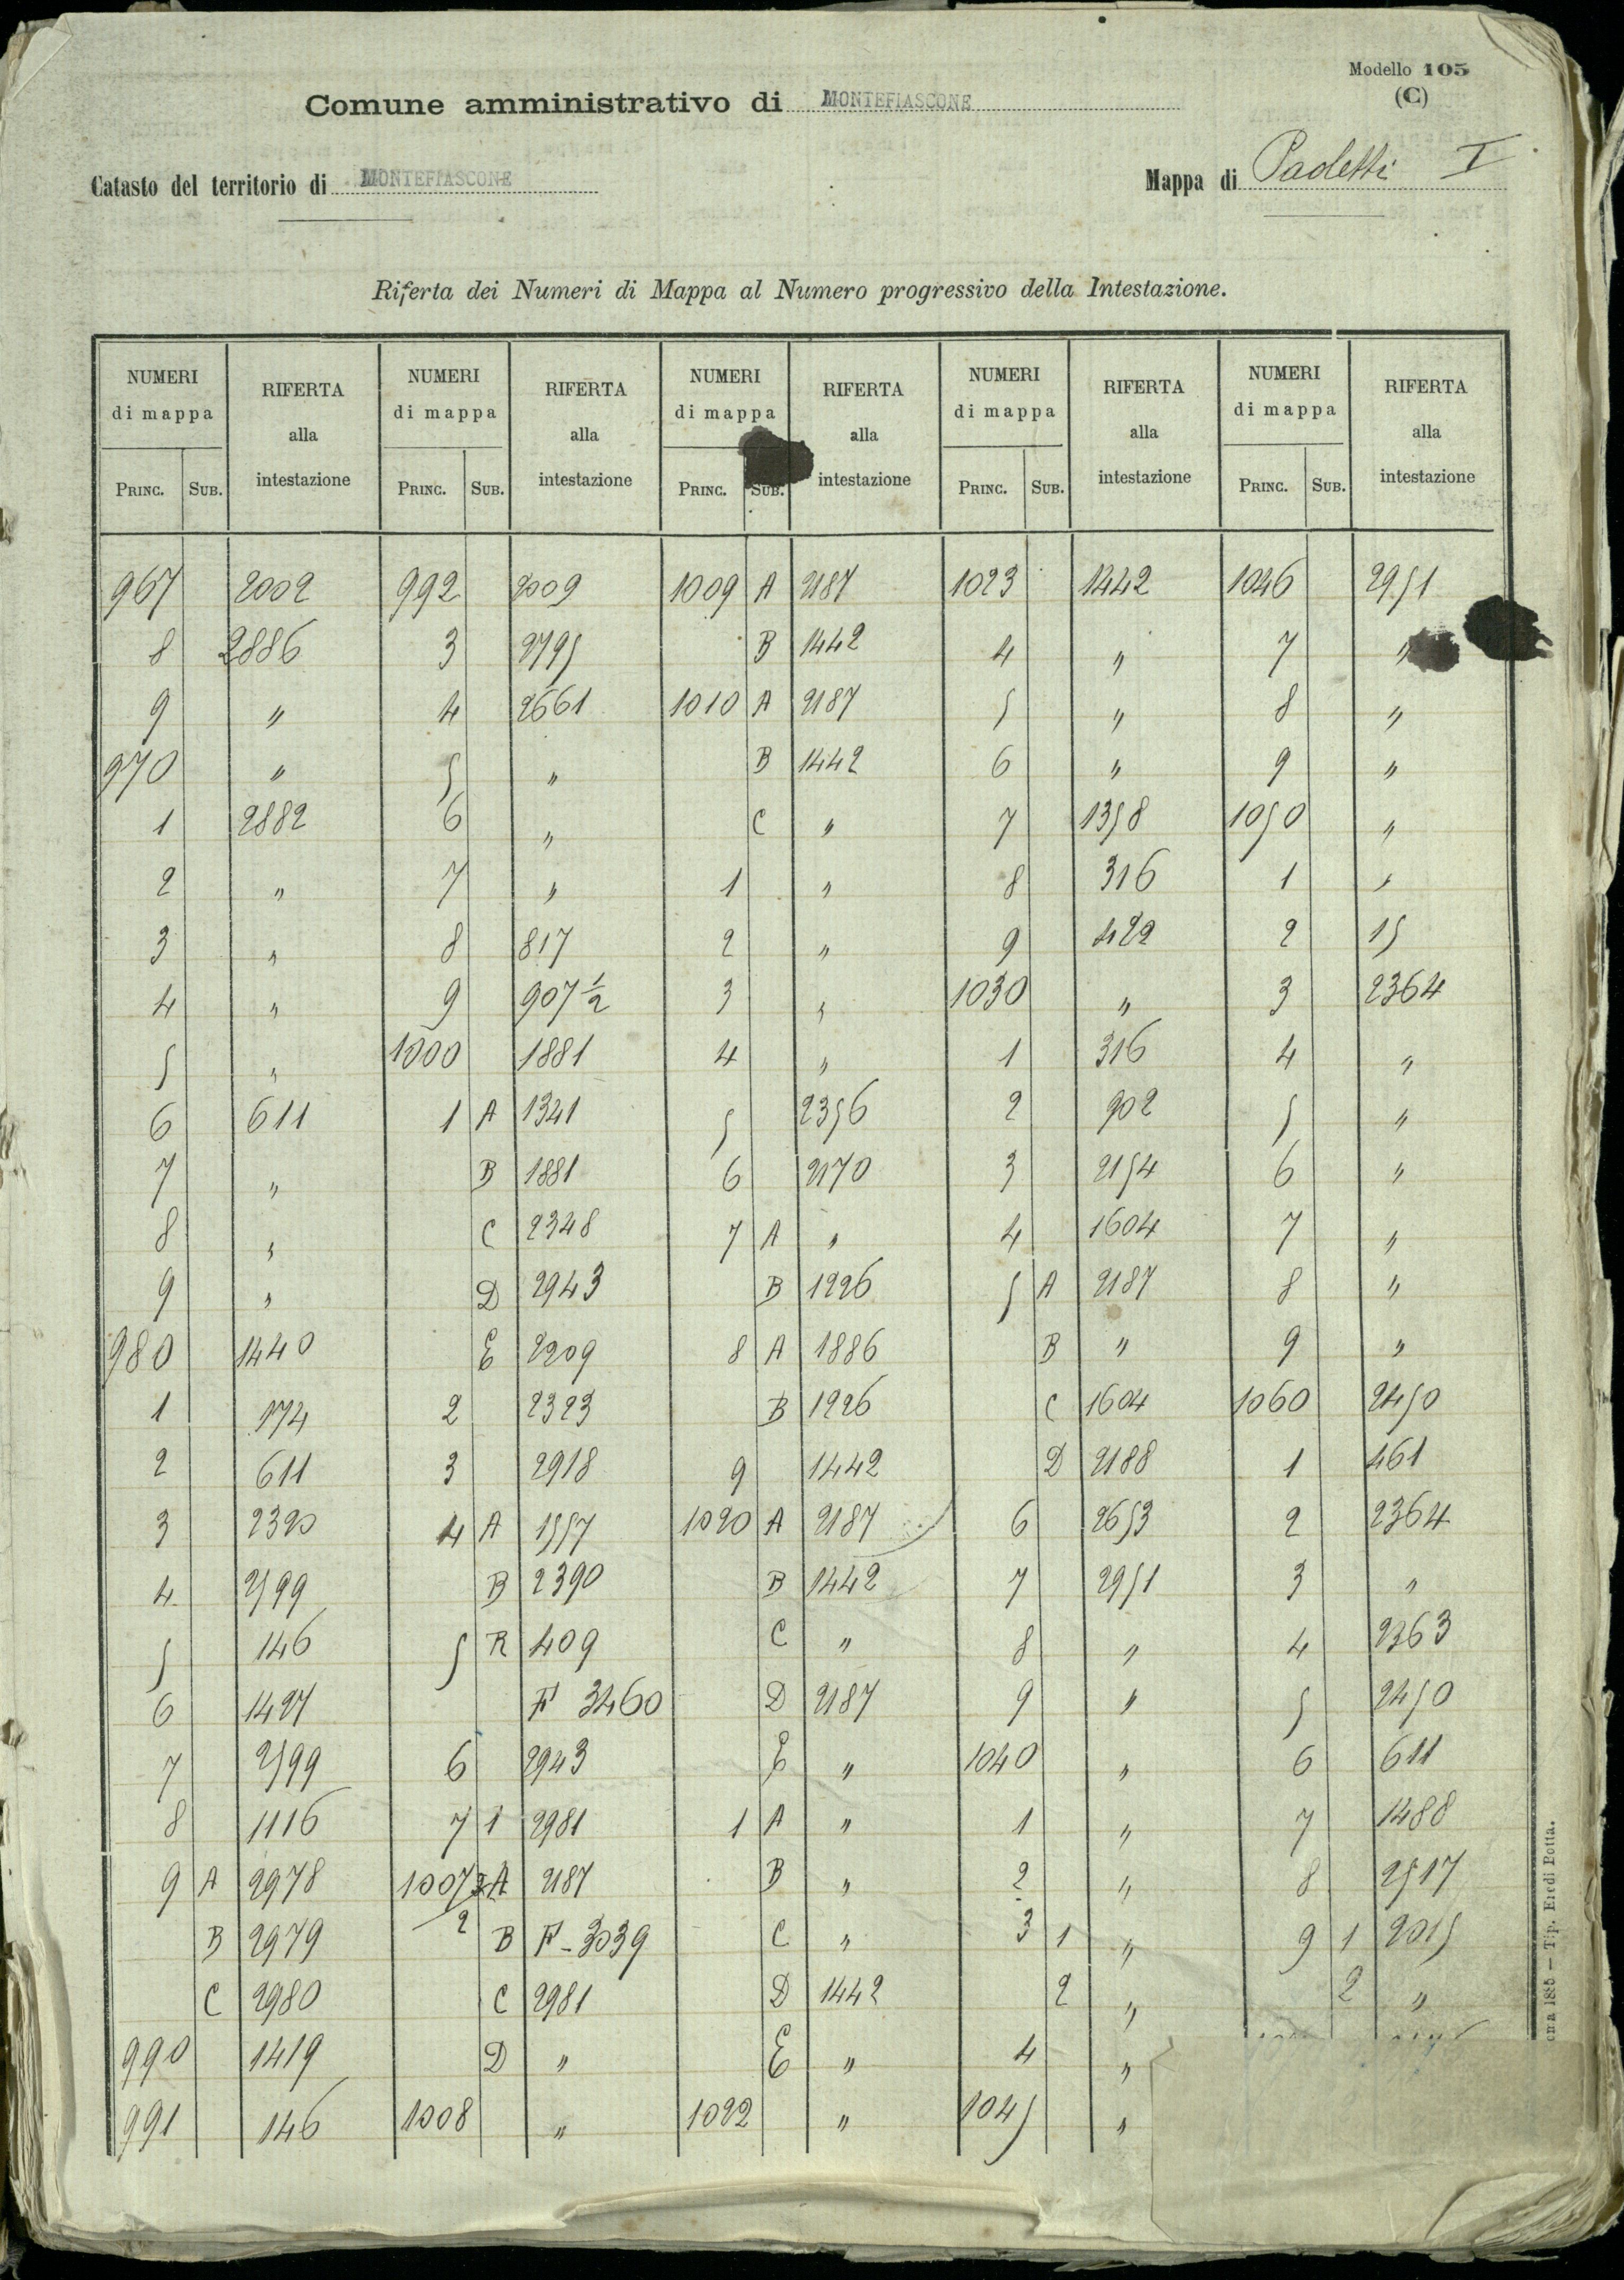 Modello 105
(C)
Comune amministrativo di MONTEFIASCONE
Catasto del territorio di MONTEFIASCONE
Mappa di Paoletti I
Riferta dei Numeri di Mappa al Numero progressivo della Intestazione.
NUMERI di mappa RIFERTA alla intestazione NUMERI di mappa RIFERTA alla intestazione NUMERI di mappa RIFERTA alla intestazione NUMERI di mappa RIFERTA alla intestazione NUMERI di mappa RIFERTA alla intestazione
PRINC. SUB. PRINC. SUB. PRINC. SUB. PRINC. SUB. PRINC. SUB.
967 2002 992 2009 1009 A 2187 1023 1442 1046 2951
8 2886 3 2795 B 1442 4 " 7 "
9 " 4 2661 1010 A 2187 5 " 8 "
970 " 5 " B 1442 6 " 9 "
1 2882 6 " C " 7 1358 1050 "
2 " 7 " 1 " 8 316 1 "
3 " 8 817 2 " 9 422 2 15
4 " 9 907 1/2 3 " 1030 " 3 2364
5 " 1000 1881 4 " 1 316 4 "
6 611 1 A 1341 5 2356 2 902 5 "
7 " B 1881 6 2170 3 2154 6 "
8 " C 2348 7 A " 4 1604 7 "
9 " D 2943 B 1226 5 A 2187 8 "
980 1440 E 2209 8 A 1886 B " 9 "
1 174 2 2323 B 1226 C 1604 1060 2450
2 611 3 2918 9 1442 D 2188 1 461
3 2320 4 A 1557 1020 A 2187 6 2653 2 2364
4 2599 B 2390 B 1442 7 2951 3 "
5 146 5 R 409 C " 8 " 4 2363
6 1427 F 3460 D 2187 9 " 5 2450
7 2599 6 2943 E " 1040 " 6 611
8 1116 7 1 2981 1 A " 1 " 7 1488
9 A 2978 1007 A 2187 B " 2 " 8 2517
B 2979 2 B F - 3039 C " 3 1 " 9 1 2015
C 2980 C 2981 D 1442 2 " 2 "
990 1419 D " E " 4 "
991 146 1008 " 1022 " 1045 "
1885 — Tip. Eredi Botta.